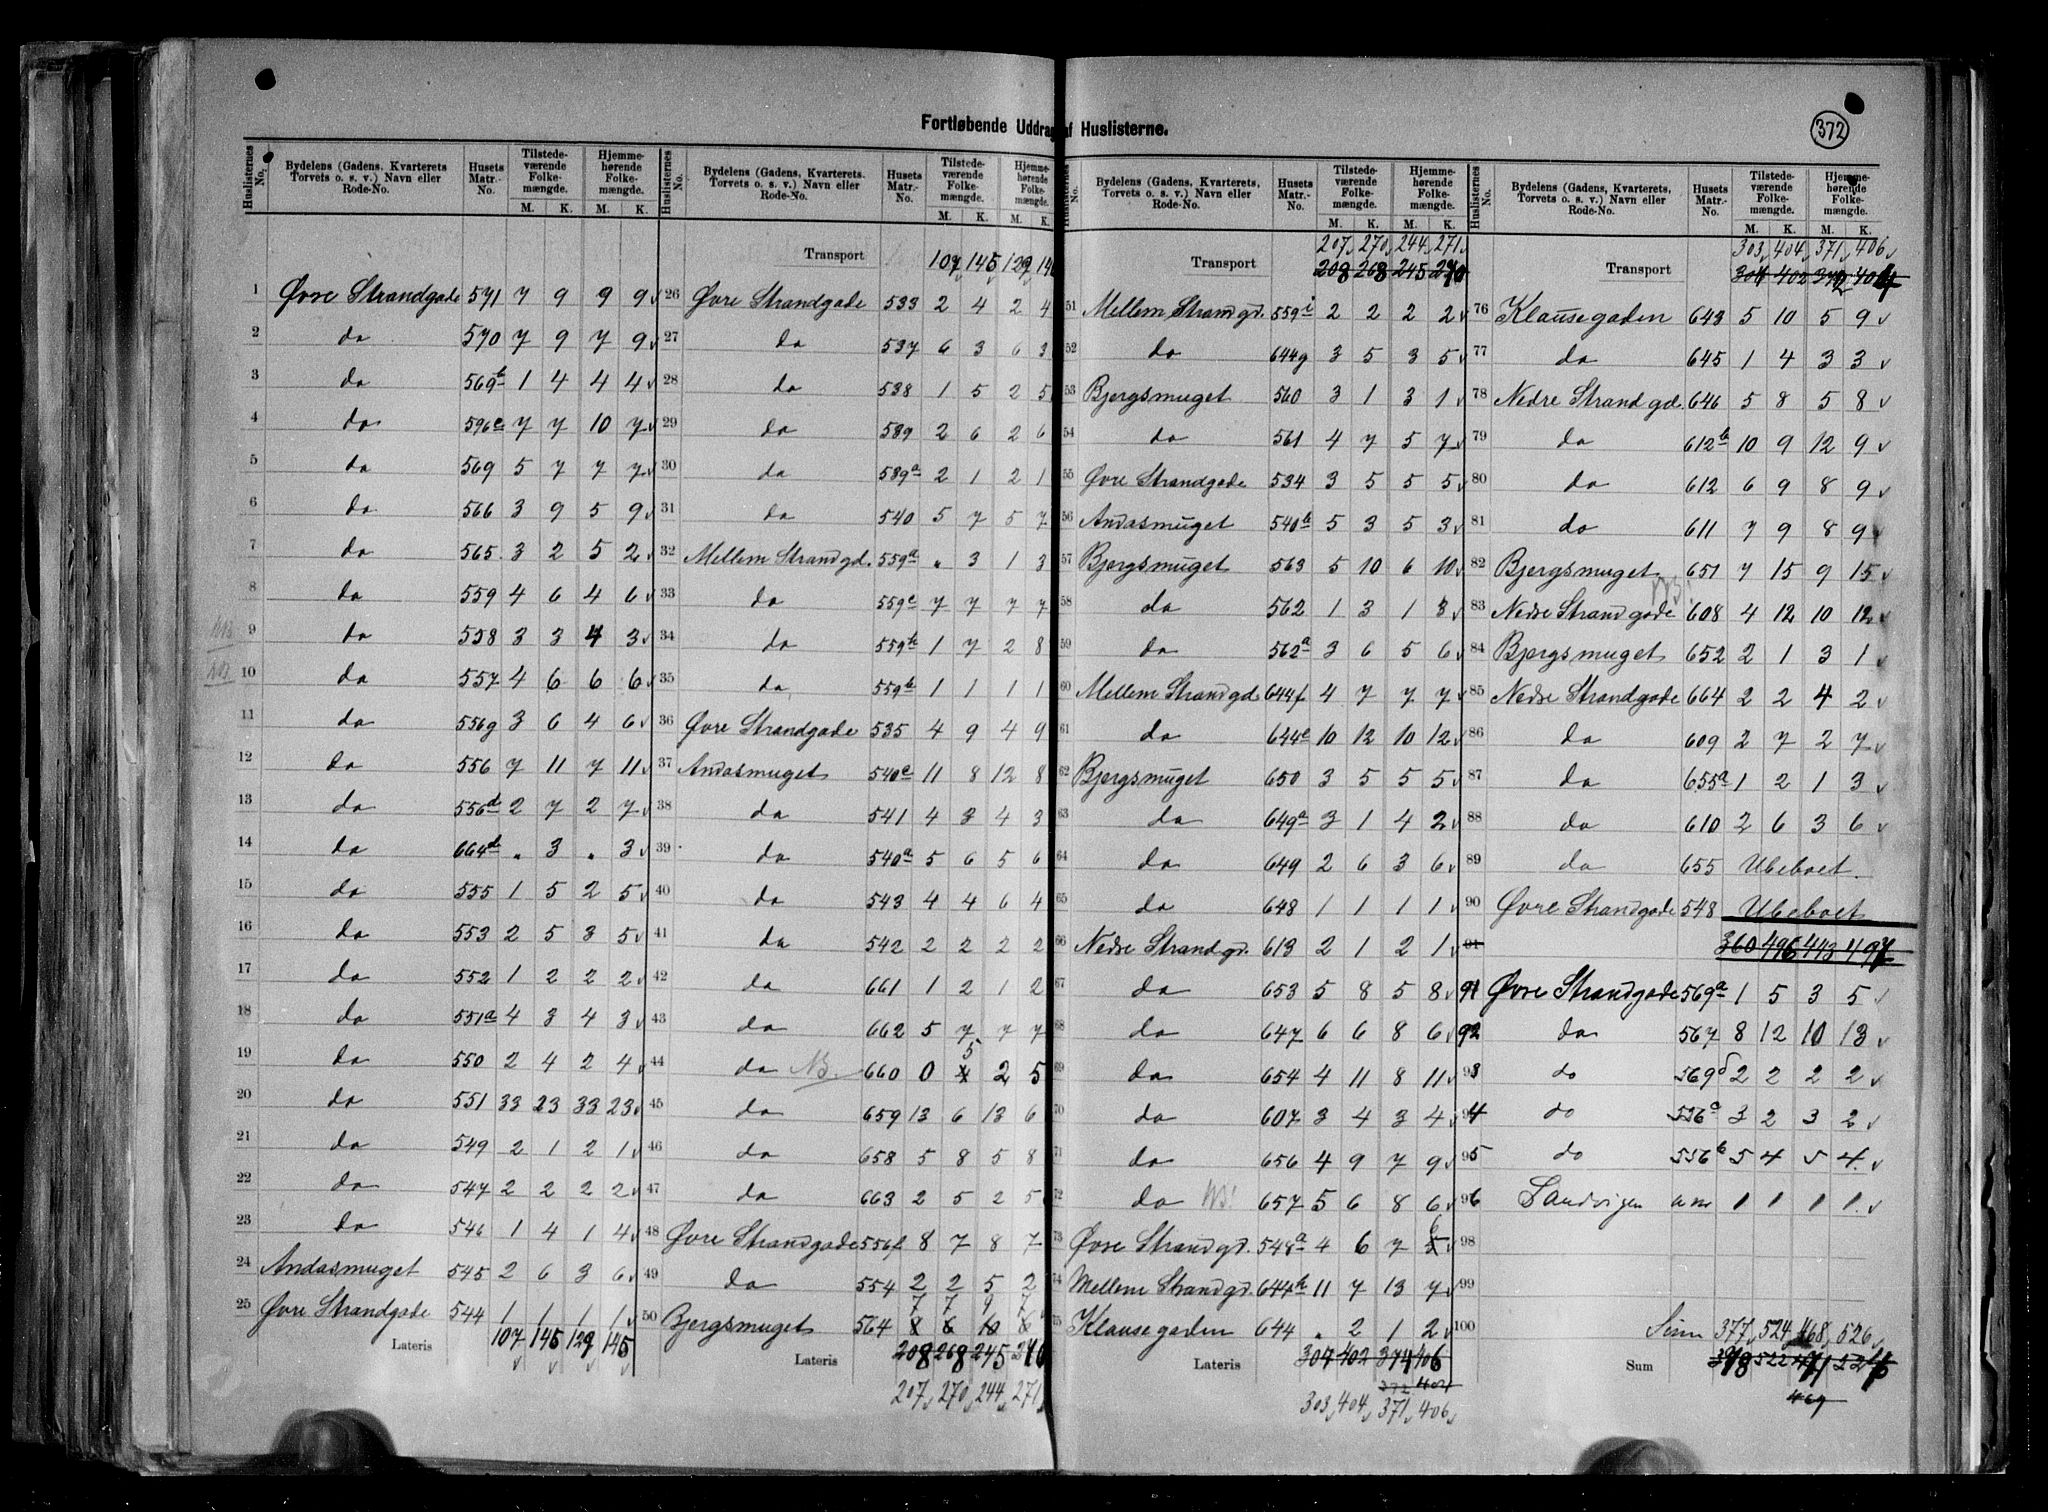 372
Fortløbende Uddrag af Huslisterne.
Huslisternes No. Bydelens (Gadens, Kvarterets Torvets o. s. v.) Navn eller Rode-No. Husets Matr.-No. Tilstedeværende Folkemængde. M. K. Hjemmehørende Folkemængde. M. K.
1 Øvre Strandgade 571 7 9 9 9
2 do 570 7 9 7 9
3 do 569b 1 4 4 4
4 do 596e 7 7 10 7
5 do 569 5 7 7 7
6 do 566 3 9 5 9
7 do 565 3 2 5 2
8 do 559 4 6 4 6
9 do 558 3 3 4 3
10 do 557 4 6 6 6
11 do 556g 3 6 4 6
12 do 556 7 11 7 11
13 do 556d 2 7 2 7
14 do 664d " 3 " 3
15 do 555 1 5 2 5
16 do 553 2 5 3 5
17 do 552 1 2 2 2
18 do 551a 4 3 4 3
19 do 550 2 4 2 4
20 do 551 33 23 33 23
21 do 549 2 1 2 1
22 do 547 2 2 2 2
23 do 546 1 4 1 4
24 Andasmuget 545 2 6 3 6
25 Øvre Strandgade 544 1 1 1 1
Lateris 107 145 129 145
Huslisternes No. Bydelens (Gadens, Kvarterets, Torvets o. s. v.) Navn eller Rode-No. Husets Matr.-No. Tilstedeværende Folkemængde. M. K. Hjemmehørende Folkemængde. M. K.
Transport 107 145 129
26 Øvre Strandgade 533 2 4 2 4
27 do 537 6 3 6 3
28 do 538 1 5 2 5
29 do 589 2 6 2 6
30 do 589a 2 1 2 1
31 do 540 5 7 5 7
32 Mellem Strandgd. 559a " 3 1 3
33 do 559c 7 7 7 7
34 do 559b 1 7 2 8
35 do 559b 1 1 1 1
36 Øvre Strandgade 535 4 9 4 9
37 Andasmuget 540e 11 8 12 8
38 do 541 4 3 4 3
39 do 540a 5 6 5 6
40 do 543 4 4 6 4
41 do 542 2 2 2 2
42 do 661 1 2 1 2
43 do 662 5 7 7 7
44 do NB. 660 0 5 2 5
45 do 659 13 6 13 6
46 do 658 5 8 5 8
47 do 663 2 5 2 5
48 Øvre Strandgade 556f 8 7 8 7
49 do 554 2 2 5 2
7 7 9 7
50 Bjergsmuget 564 8 6 10 6
Lateris 208 268 245 270
207 270 244 271
Huslisternes No. Bydelens (Gadens, Kvarterets, Torvets o. s. v.) Navn eller Rode-No. Husets Matr.-No. Tilstedeværende Folkemængde. M. K. Hjemmehørende Folkemængde. M. K.
207 270 244 271
Transport 208 268 245 270
51 Mellem Strandgd. 559i 2 2 2 2
52 do 644g 3 5 3 5
53 Bjergsmuget 560 3 1 3 1
54 do 561 4 7 5 7
55 Øvre Strandgade 534 3 5 5 5
56 Andasmuget 540b 5 3 5 3
57 Bjergsmuget 563 5 10 6 10
58 do 562 1 3 1 3
59 do 562a 3 6 5 6
60 Mellem Strandgd 644f 4 7 7 7
61 do 644e 10 12 10 12
62 Bjergsmuget 650 3 5 5 5
63 do 649a 3 1 4 2
64 do 649 2 6 3 6
65 do 648 1 1 1 1
66 Nedre Strandgd. 613 2 1 2 1
67 do 653 5 8 5 8
68 do 647 6 6 8 6
69 do 654 4 11 8 11
70 do 607 3 4 3 4
71 do 656 4 9 7 9
72 do NB! 657 5 6 8 6
73 Øvre Strandgd. 548a 4 6 7 6
74 Mellem Strandgd. 644h 11 7 13 7
75 Klausegaden 644 " 2 1 2
Lateris 307 402 374 406
372 404
303 404 371 406
Huslisternes No. Bydelens (Gadens, Kvarterets, Torvets o. s. v.) Navn eller Rode-No. Husets Matr.-No. Tilstedeværende Folkemængde. M. K. Hjemmehørende Folkemængde. M. K.
303 404 371 406
Transport 304 402 372 404
76 Klausegaden 643 5 10 5 9
77 do 645 1 4 3 3
78 Nedre Strandgd. 646 5 8 5 8
79 do 612b 10 9 12 9
80 do 612 6 9 8 9
81 do 611 7 9 8 9
82 Bjergsmuget 651 7 15 9 15
83 Nedre Strandgade NB! 608 4 12 10 12
84 Bjergsmuget 652 2 1 3 1
85 Nedre Strandgade 664 2 2 4 2
86 do 609 2 7 2 7
87 do 655a 1 2 1 3
88 do 610 2 6 3 6
89 do 655 Ubeboet.
90 Øvre Strandgade 548 Ubeboet
91 360 496 443 497
91 Øvre Strandgade 569a 1 5 3 5
92 do 567 8 12 10 13
93 do 569d 2 2 2 2
94 do 556a 3 2 3 2
95 do 556b 5 4 5 4
96 Sandvigen 1 1 1 1
98
99
100 Sum 377 524 468 526
Sum 378 522 471
469